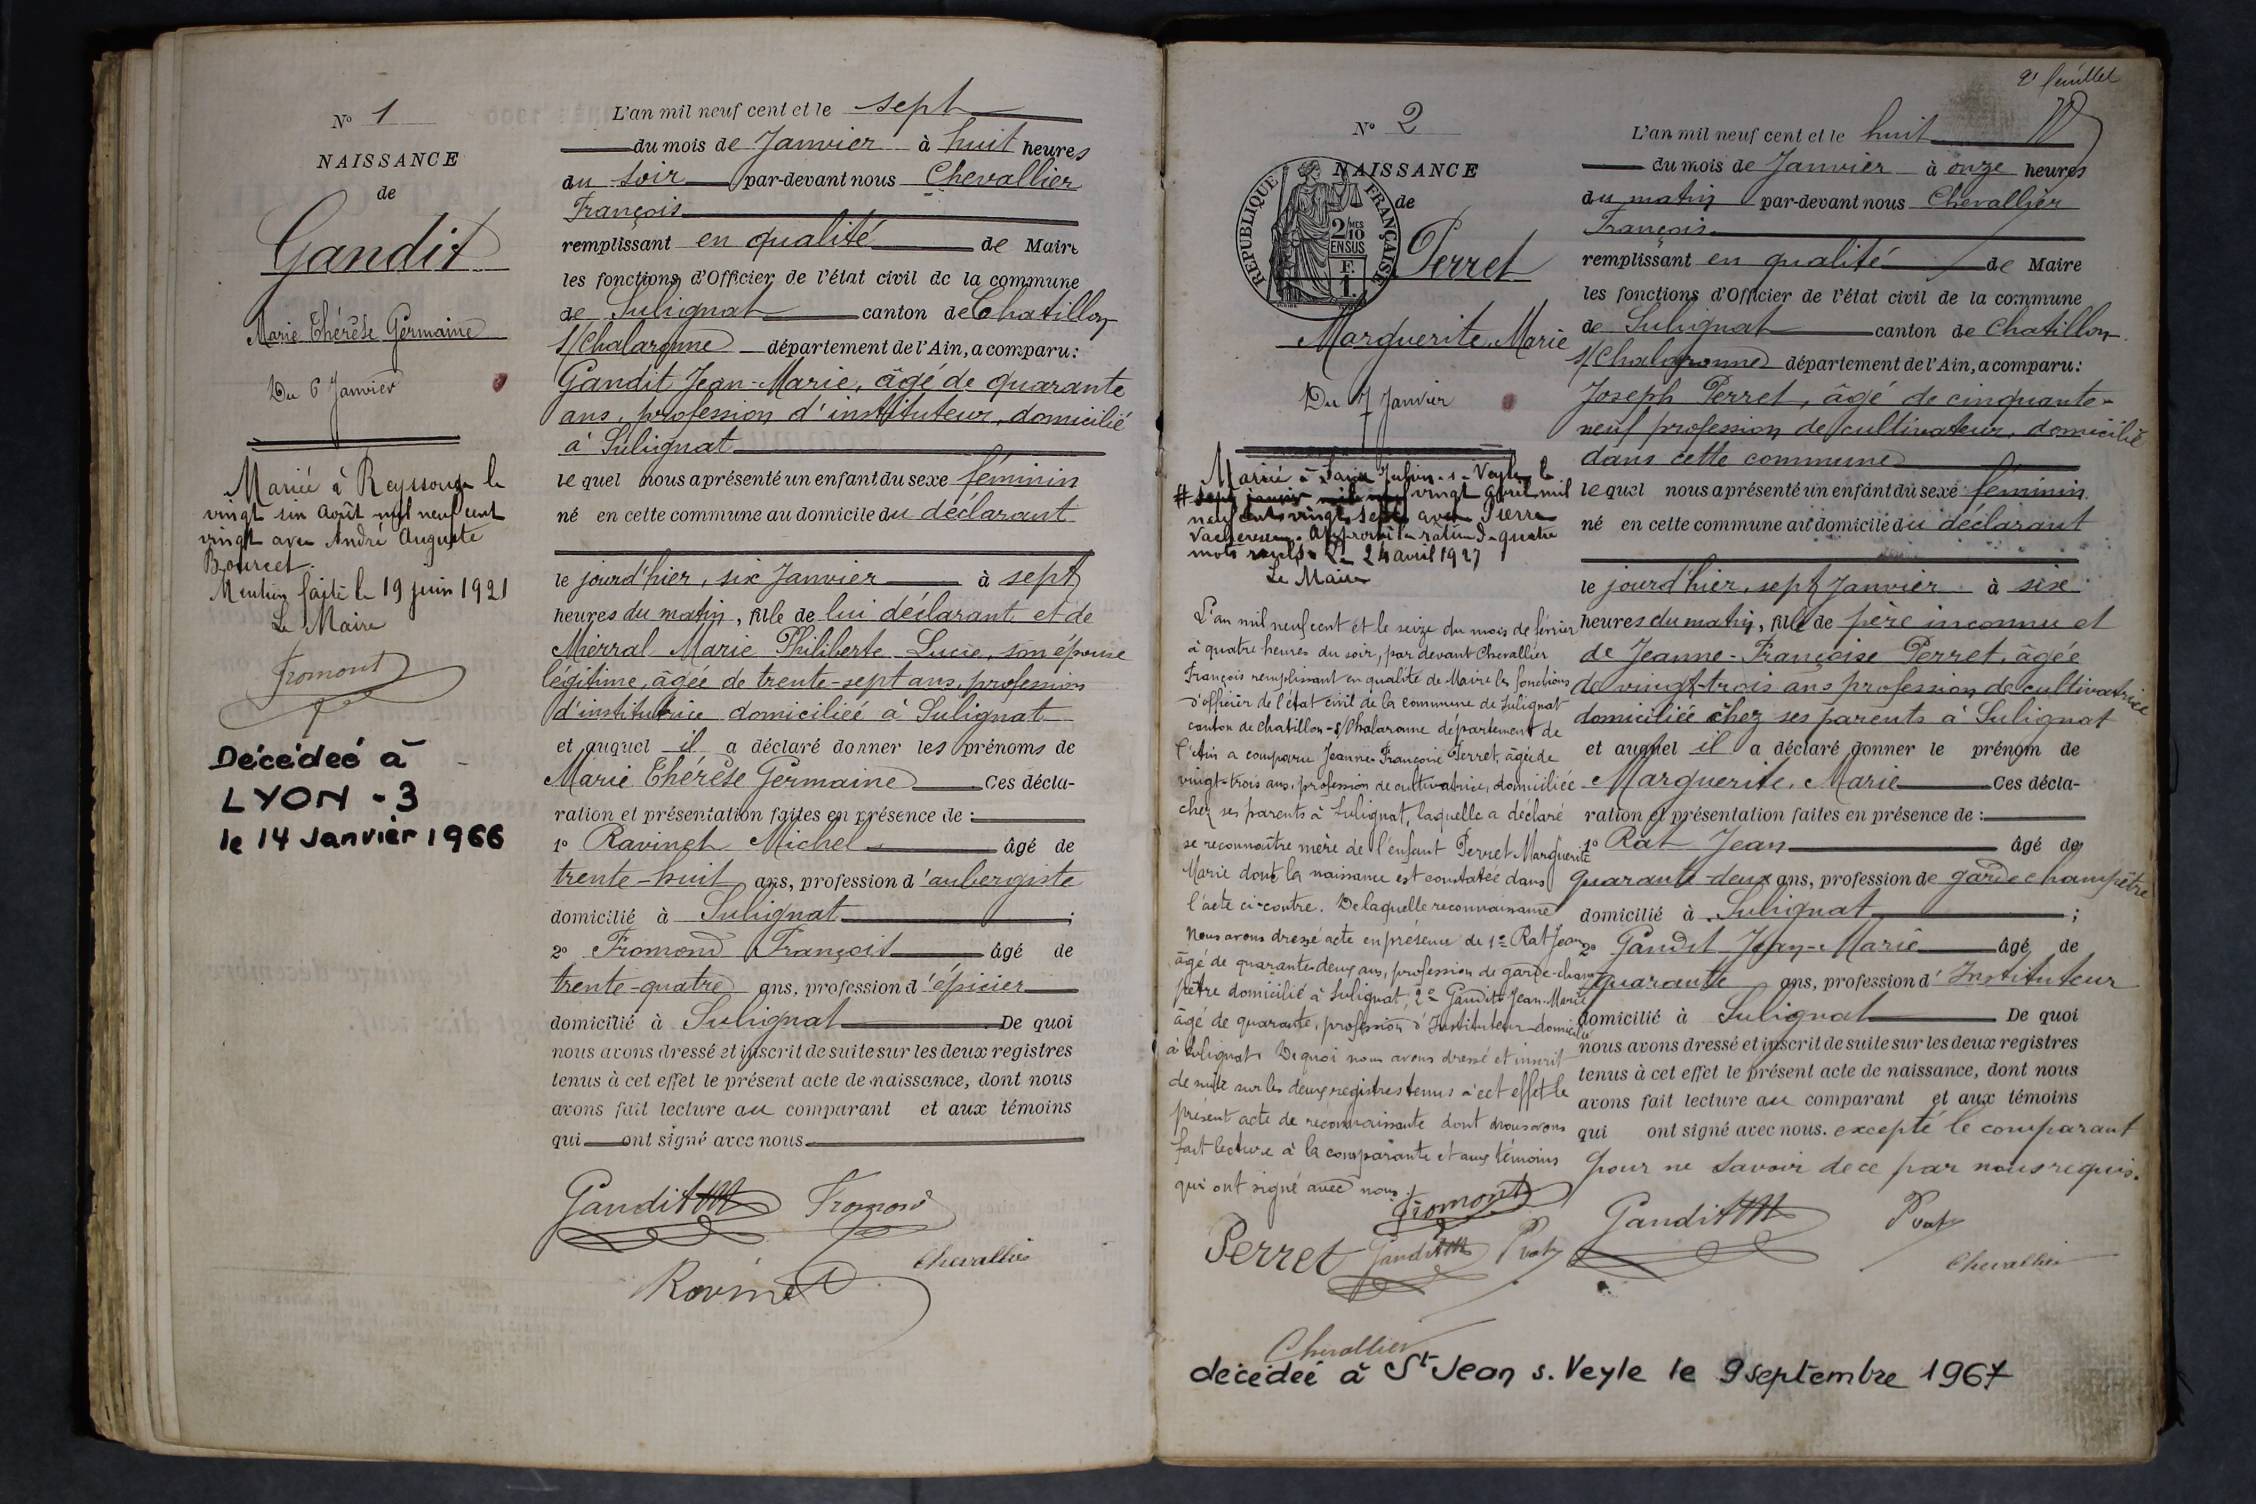 N° 1
NAISSANCE
de
Gandit
Marie Thérèse Germaine
Du 6 Janvier
Mariée à Reyssouze le
vingt un Août mil neuf cent
vingt avec André Auguste
Bourcet.
Mention faite le 19 juin 1921
Le Maire
Fromont
Décédeé à
LYON - 3
le 14 Janvier 1966
L'an mil neuf cent et le sept
du mois de Janvier à huit heures
du soir par-devant nous Chevallier
François
remplissant en qualité de Maire
les fonctions d'Officier de l'état civil de la commune
de Sulignat canton de Chatillon
s/Chalaronne département de l'Ain, a comparu:
Gandit Jean-Marie, âgé de quarante
ans, profession d'instituteur, domicilié
à Sulignat
le quel nous a présenté un enfant du sexe féminin
né en cette commune au domicile du déclarant
le jourd'hier, six Janvier à sept
heures du matin, fille de lui déclarant et de
Mierral Marie Philiberte Lucie, son épouse
légitime, âgée de trente-sept ans, profession
d'institutrice domiciliée à Sulignat
et auquel il a déclaré donner les prénoms de
Marie Thérèse Germaine Ces décla-
ration et présentation faites en présence de :
1° Ravinet Michel âgé de
trente-huit ans, profession d'aubergiste
domicilié à Sulignat ;
2° Fromond François âgé de
trente-quatre ans, profession d'épicier
domicilié à Sulignat De quoi
nous avons dressé et inscrit de suite sur les deux registres
tenus à cet effet le présent acte de naissance, dont nous
avons fait lecture au comparant et aux témoins
qui ont signé avec nous
Gandit Fromond
Chevallier
Ravinet
2e feuillet
N° 2
NAISSANCE
de
REPUBLIQUE FRANÇAISE
2/10 MES
EN SUS
F.
1.
Perret
Marguerite Marie
Du 7 Janvier
Mariée à Saint Julien-s-Veyle, le
vingt avril mil
neuf cent vingt sept avec Pierre
Approuvé la rature de quatre
mots rayés. Le 24 avril 1927
Le Maire
Fromont
L'an mil neuf cent et le seize du mois de février
à quatre heures du soir, par devant Chevallier
François remplissant en qualité de Maire les fonctions
d'officier de l'état civil de la commune de Sulignat
canton de Chatillon-s/Chalaronne département de
l'Ain a comparu Jeanne-Françoise Perret, âgée de
vingt-trois ans, profession de cultivatrice, domiciliée
chez ses parents à Sulignat, laquelle a déclaré
se reconnaître mère de l'enfant Perret Marguerite
Marie dont la naissance est constatée dans
l'acte ci-contre. De laquelle reconnaissance
nous avons dressé acte en présence de 1° Rat Jean
âgé de quarante-deux ans, profession de garde-cham
pêtre domicilié à Sulignat, 2° Gandit Jean-Marie
âgé de quarante, profession d'Instituteur domicilié
à Sulignat. De quoi nous avons dressé et inscrit
de suite sur les deux registres tenus à cet effet le
présent acte de reconnaissante dont nous avons
fait lecture à la comparante et aux témoins
qui ont signé avec nous.
Perret Gandit Prat
Chevallier
L'an mil neuf cent et le huit
du mois de Janvier à onze heures
du matin par-devant nous Chevallier
François
remplissant en qualité de Maire
les fonctions d'Officier de l'état civil de la commune
de Sulignat canton de Chatillon
s/Chalaronne département de l'Ain, a comparu:
Joseph Perret, âgé de cinquante-
neuf profession de cultivateur, domicilié
dans cette commune
le quel nous a présenté un enfant du sexe féminin
né en cette commune au domicile du déclarant
le jourd'hier, sept Janvier à six
heures du matin, fille de père inconnu et
de Jeanne-Françoise Perret, âgée
de vingt-trois ans profession de cultivatrice
domiciliée chez ses parents à Sulignat
et auquel il a déclaré donner le prénom de
Marguerite, Marie Ces décla-
ration et présentation faites en présence de :
1° Rat Jean âgé de
quarante-deux ans, profession de garde champêtre
domicilié à Sulignat ;
2° Gandit Jean-Marie âgé de
quarante ans, profession d'Instituteur
domicilié à Sulignat De quoi
nous avons dressé et inscrit de suite sur les deux registres
tenus à cet effet le présent acte de naissance, dont nous
avons fait lecture au comparant et aux témoins
qui ont signé avec nous. excepté le comparant
pour ne savoir de ce par nous requis.
Gandit Prat
Chevallier
décédeé à St Jean s. Veyle le 9 septembre 1967